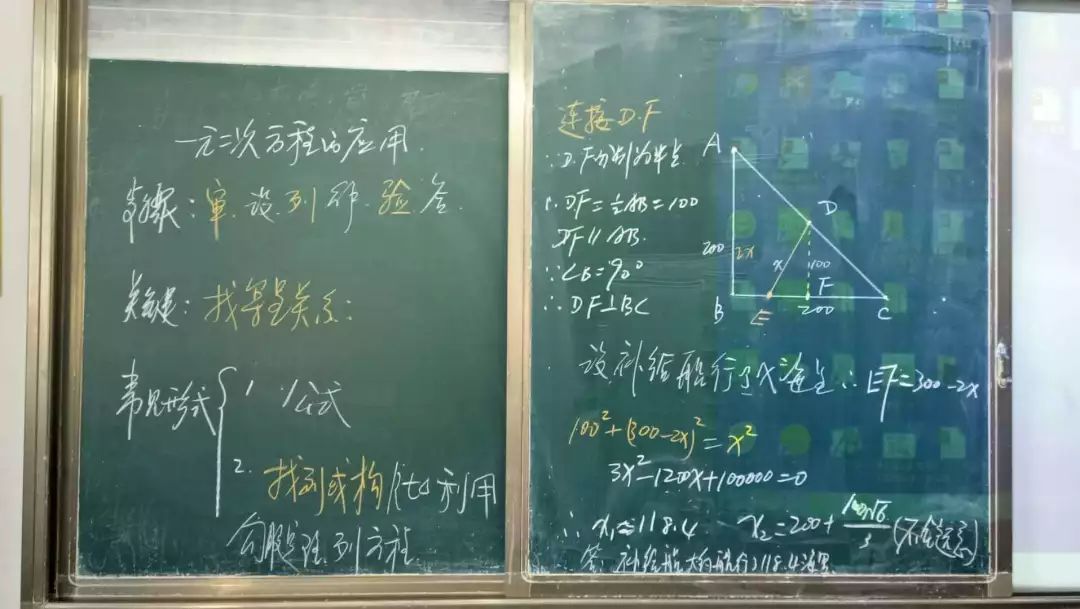 一元二次方程的应用.
步骤: 审. 设. 列 解. 验. 答.
关键: 找等量关系:
常见形式
1. 公式
2. 找到或构 利用
勾股定理列方程.
连接D.F
∵D.F分别为中点
∴DF=½AB=100
DF∥AB.
∵∠B=90°
∴DF⊥BC
A
D
200
2x
x
100
B
E
F
200
C
设补给船行了x海里 ∴EF=300-2x
100²+(300-2x)²=x²
3x²-1200x+100000=0
∴x₁≈118.4 x₂=200+100√6/3 (不合题意)
答: 补给船大约航行了118.4海里.